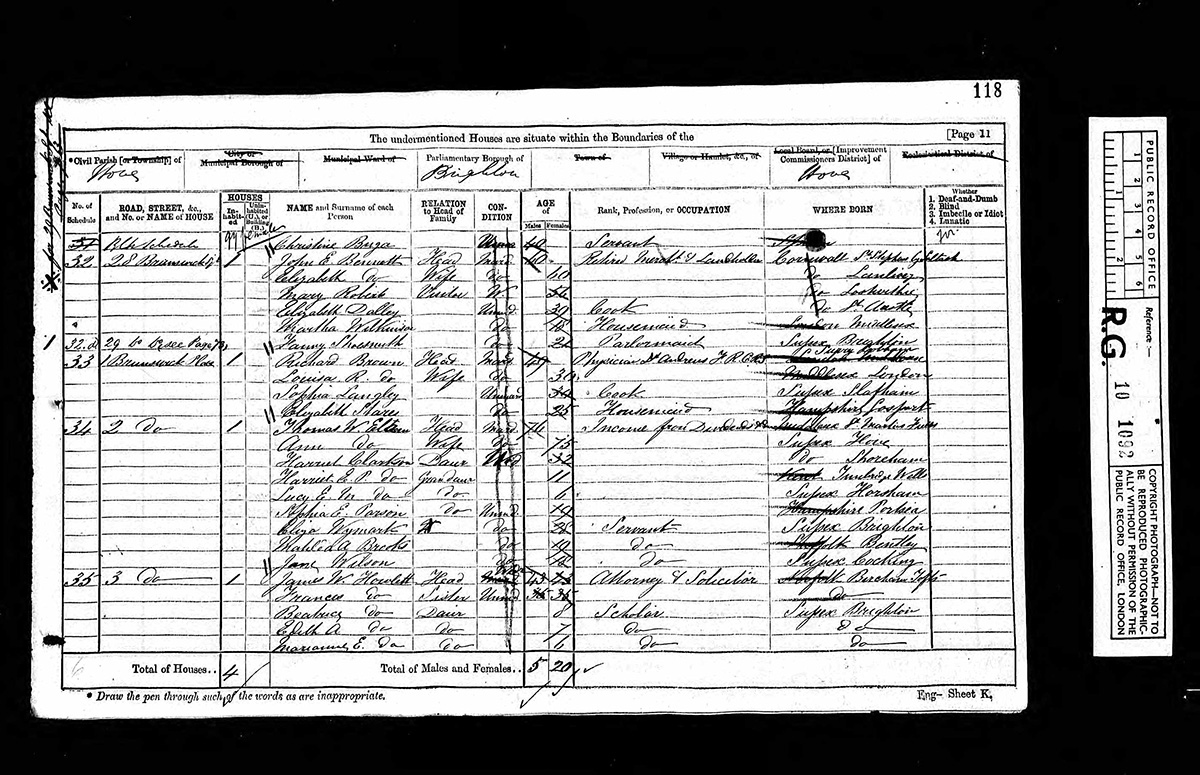 118
The undermentioned Houses are situate within the Boundaries of the
[Page 11
* Civil Parish [or Township] of
City or Municipal Borough of
Municipal Ward of
Parliamentary Borough of
Town of
Village or Hamlet, &c., of
Local Board, or [Improvement Commissioners District] of
Ecclesiastical District of
Hove Brighton Hove
No. of Schedule
ROAD, STREET, &c., and No. or NAME of HOUSE
HOUSES
Inhabited
Uninhabited (U.), or Building (B.)
NAME and Surname of each Person
RELATION to Head of Family
CONDITION
AGE of
Males Females
Rank, Profession, or OCCUPATION
WHERE BORN
Whether
1. Deaf-and-Dumb
2. Blind
3. Imbecile or Idiot
4. Lunatic
31 Christine 40 Servant
32 28 Brunswick 1 John E. Bennett Head Mard 60 Retired & Landholder Cornwall St Stephens
Elizabeth do Wife do 60 do
Mary Robert Visitor W. 54 do
Elizabeth Dolley Unmd 39 Cook do St Austle
Martha Wilkinson do 18 Housemaid London Middlesex
32.a 29 do see Page Fanny Shoesmith do 21 Parlormaid Sussex Brighton
33 1 Brunswick Place 1 Richard Brown Head Mard 49 Physician St Andrews F.R.C.S.
Louisa R. do Wife do 39 Middlesex London
Sophia Langley Unmar 34 Cook Sussex Slafham
Elizabeth Hares do 25 Housemaid Hampshire Gosport
34 2 do 1 Thomas W. Head Mard 76 Income from Dividends Middlesex St Martins
Ann do Wife do 75 Sussex Hove
Harriet Clarkson Daur 32 do Shoreham
Harriet E. P. do Grandaur 11 Kent Tunbridge Wells
Lucy E. M. do do 6 Sussex Horsham
Alphia E. Parson do Unmd 19 Hampshire Portsea
Eliza Wymark do 28 Servant Sussex Brighton
Matilda A Brooks do 19 do Suffolk Bentley
Jane Wilson 18 do Sussex Cocking
35 3 do 1 James W. Howlett Head 43 Attorney & Solicitor Norfolk Bircham
Frances do Sister Unmd 35 do
Beatrice do Daur 8 Scholar Sussex Brighton
Edith A do do 7 do do
Marianne E. do do 6 do do
Total of Houses.. 4
Total of Males and Females.. 5 20
* Draw the pen through such of the words as are inappropriate.
Eng- Sheet K.
PUBLIC RECORD OFFICE
1 2 3 4 5 6
1 2
Reference:-
R.G. 10 1092
COPYRIGHT PHOTOGRAPH—NOT TO BE REPRODUCED PHOTOGRAPHICALLY WITHOUT PERMISSION OF THE PUBLIC RECORD OFFICE, LONDON